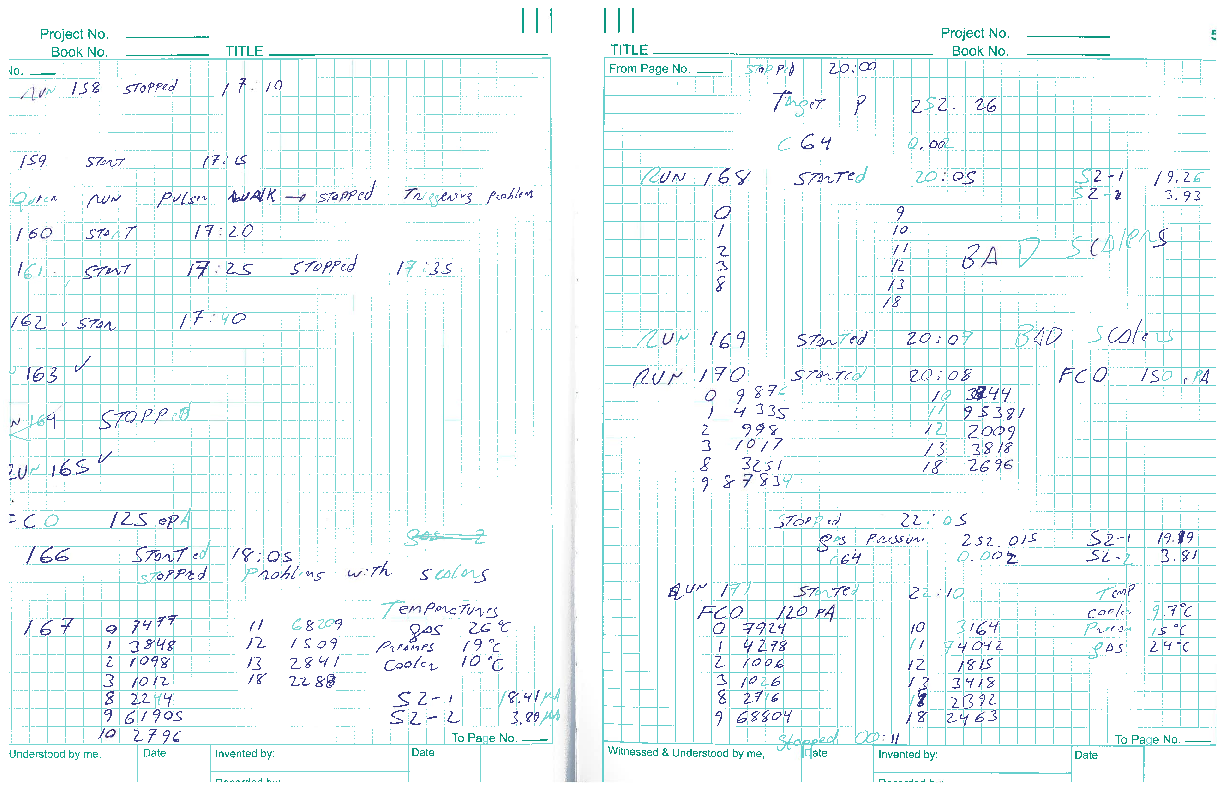 Project No.
Book No. TITLE
No.
RUN 158 STOPPED 17:10
159 START 17:15
Quick RUN Pulser WALK → STOPPED Triggering problem
160 START 17:20
161 START 17:25 STOPPED 17:35
162 START 17:40
163 ✓
164 STOPPED
RUN 165 ✓
FCO 125 epA
gas-2
166 STARTED 18:05
STOPPED Problems with scalers
Temperatures
167 0 7477 11 68209 gas 26°C
1 3848 12 1509 Preamps 19°C
2 1098 13 2841 Cooler 10°C
3 1012 18 2288
8 2244 S2-1 18.41
9 61905 S2-2 3.89
10 2796
To Page No.
Understood by me, Date Invented by: Date
Project No. 5
TITLE Book No.
From Page No. Stopped 20:00
Target P 252.26
C64 0.002
RUN 168 STARTED 20:05 S2-1 19.26
S2-2 3.93
0 9
1 10
2 11 BAD Scalers
3 12
8 13
18
RUN 169 Started 20:07 BAD Scalers
RUN 170 Started 20:08 FCO 150 PA
0 987 10 3244
1 4335 11 95381
2 998 12 2009
3 1017 13 3818
8 3251 18 2696
9 87834
STOPPED 22:05
gas Pressure 252.015 S2-1 19.19
c64 0.002 S2-2 3.81
RUN 171 Started 22:10 Temp
FCO 120 PA cooler 9.7°C
0 7924 10 3164 Pream 15°C
1 4278 11 74042 gas 24°C
2 1006 12 1815
3 1026 13 3418
8 2716 2392
9 68804 18 2463
Stopped 00:11
To Page No.
Witnessed & Understood by me, Date Invented by: Date